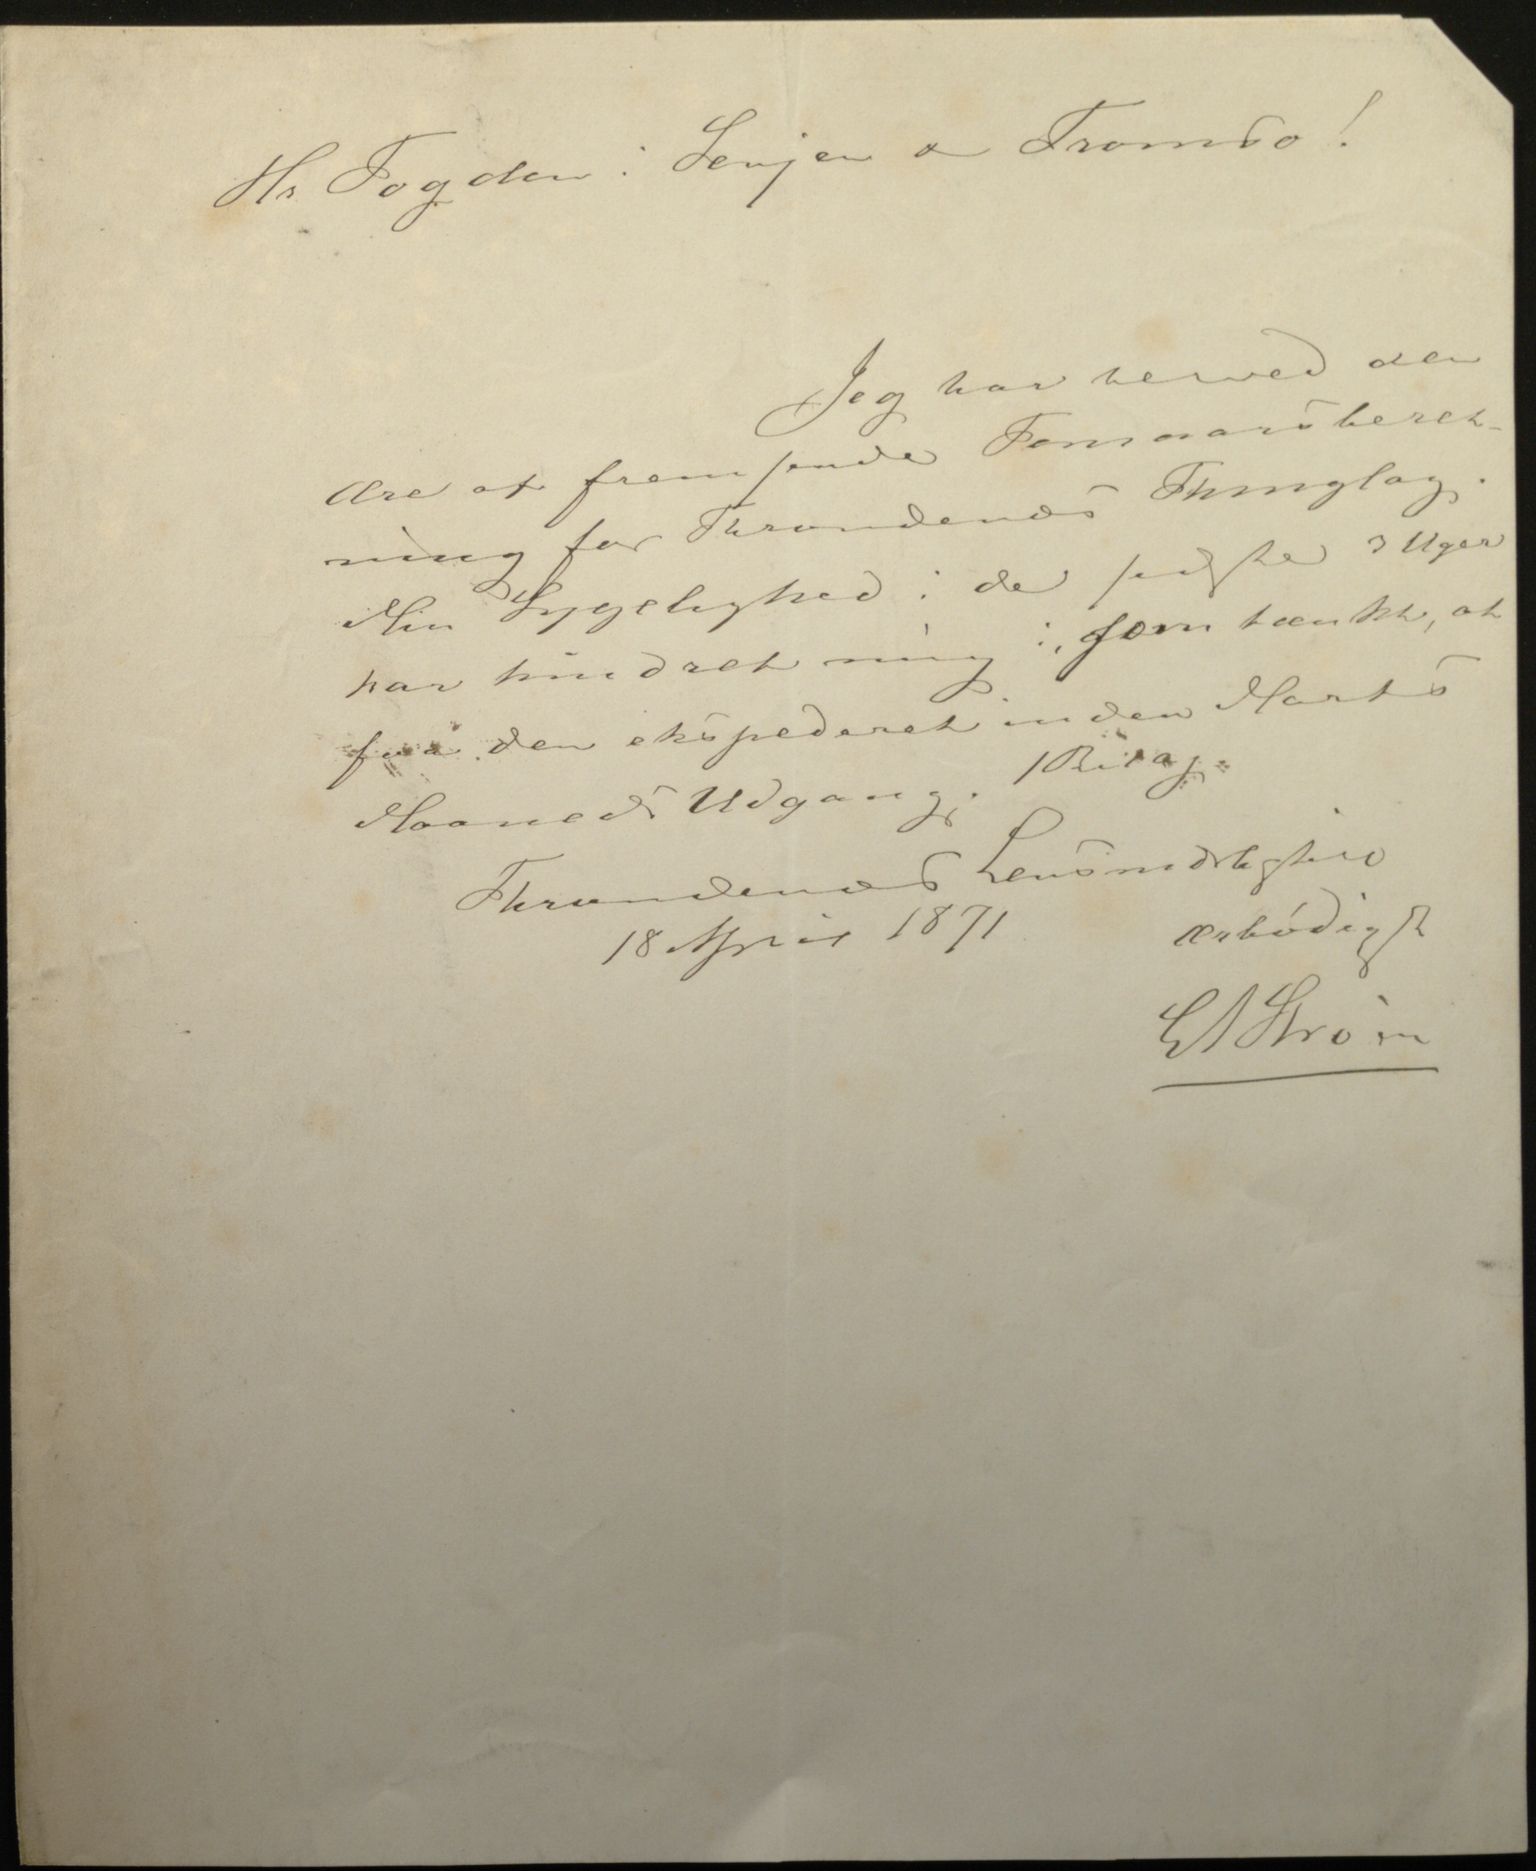 Hr Fogden i Senjen & Tromsø!
Jeg har herved den
Ære at fremsende Femaarsberet-
ning for Throndenæs Thinglag.
Min Sygelighed i de sidste 3 Uger
har hindret mig i, som tænkt, at
faa den ekspederet inden Marts
Maaneds Udgang. 1 Bilag.
Throndenæs Lensmdsbesti
18 April 1871 ærbødigst
EA Strøm